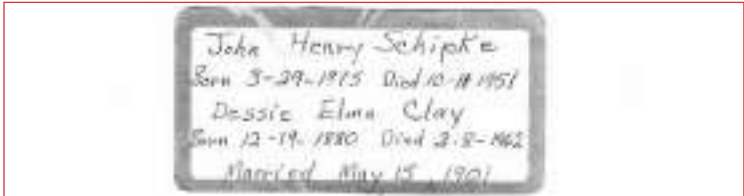 John Henry Schipke
Born 3-29-1875 Died 10- 1951
Dessie Elma Clay
Born 12-19-1880 Died 2-8-1962
Married May 15, 1901